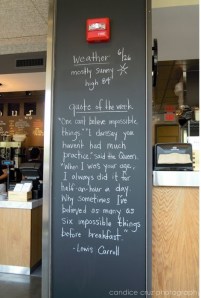 Weather 6/26
mostly sunny
high 84°
quote of the week
"One can't believe impossible
things." "I daresay you
haven't had much
practice," said the Queen.
"When I was your age,
I always did it for
half-an-hour a day.
Why sometimes I've
believed as many as
six impossible things
before breakfast."
- Lewis Carroll
candice cruz photography